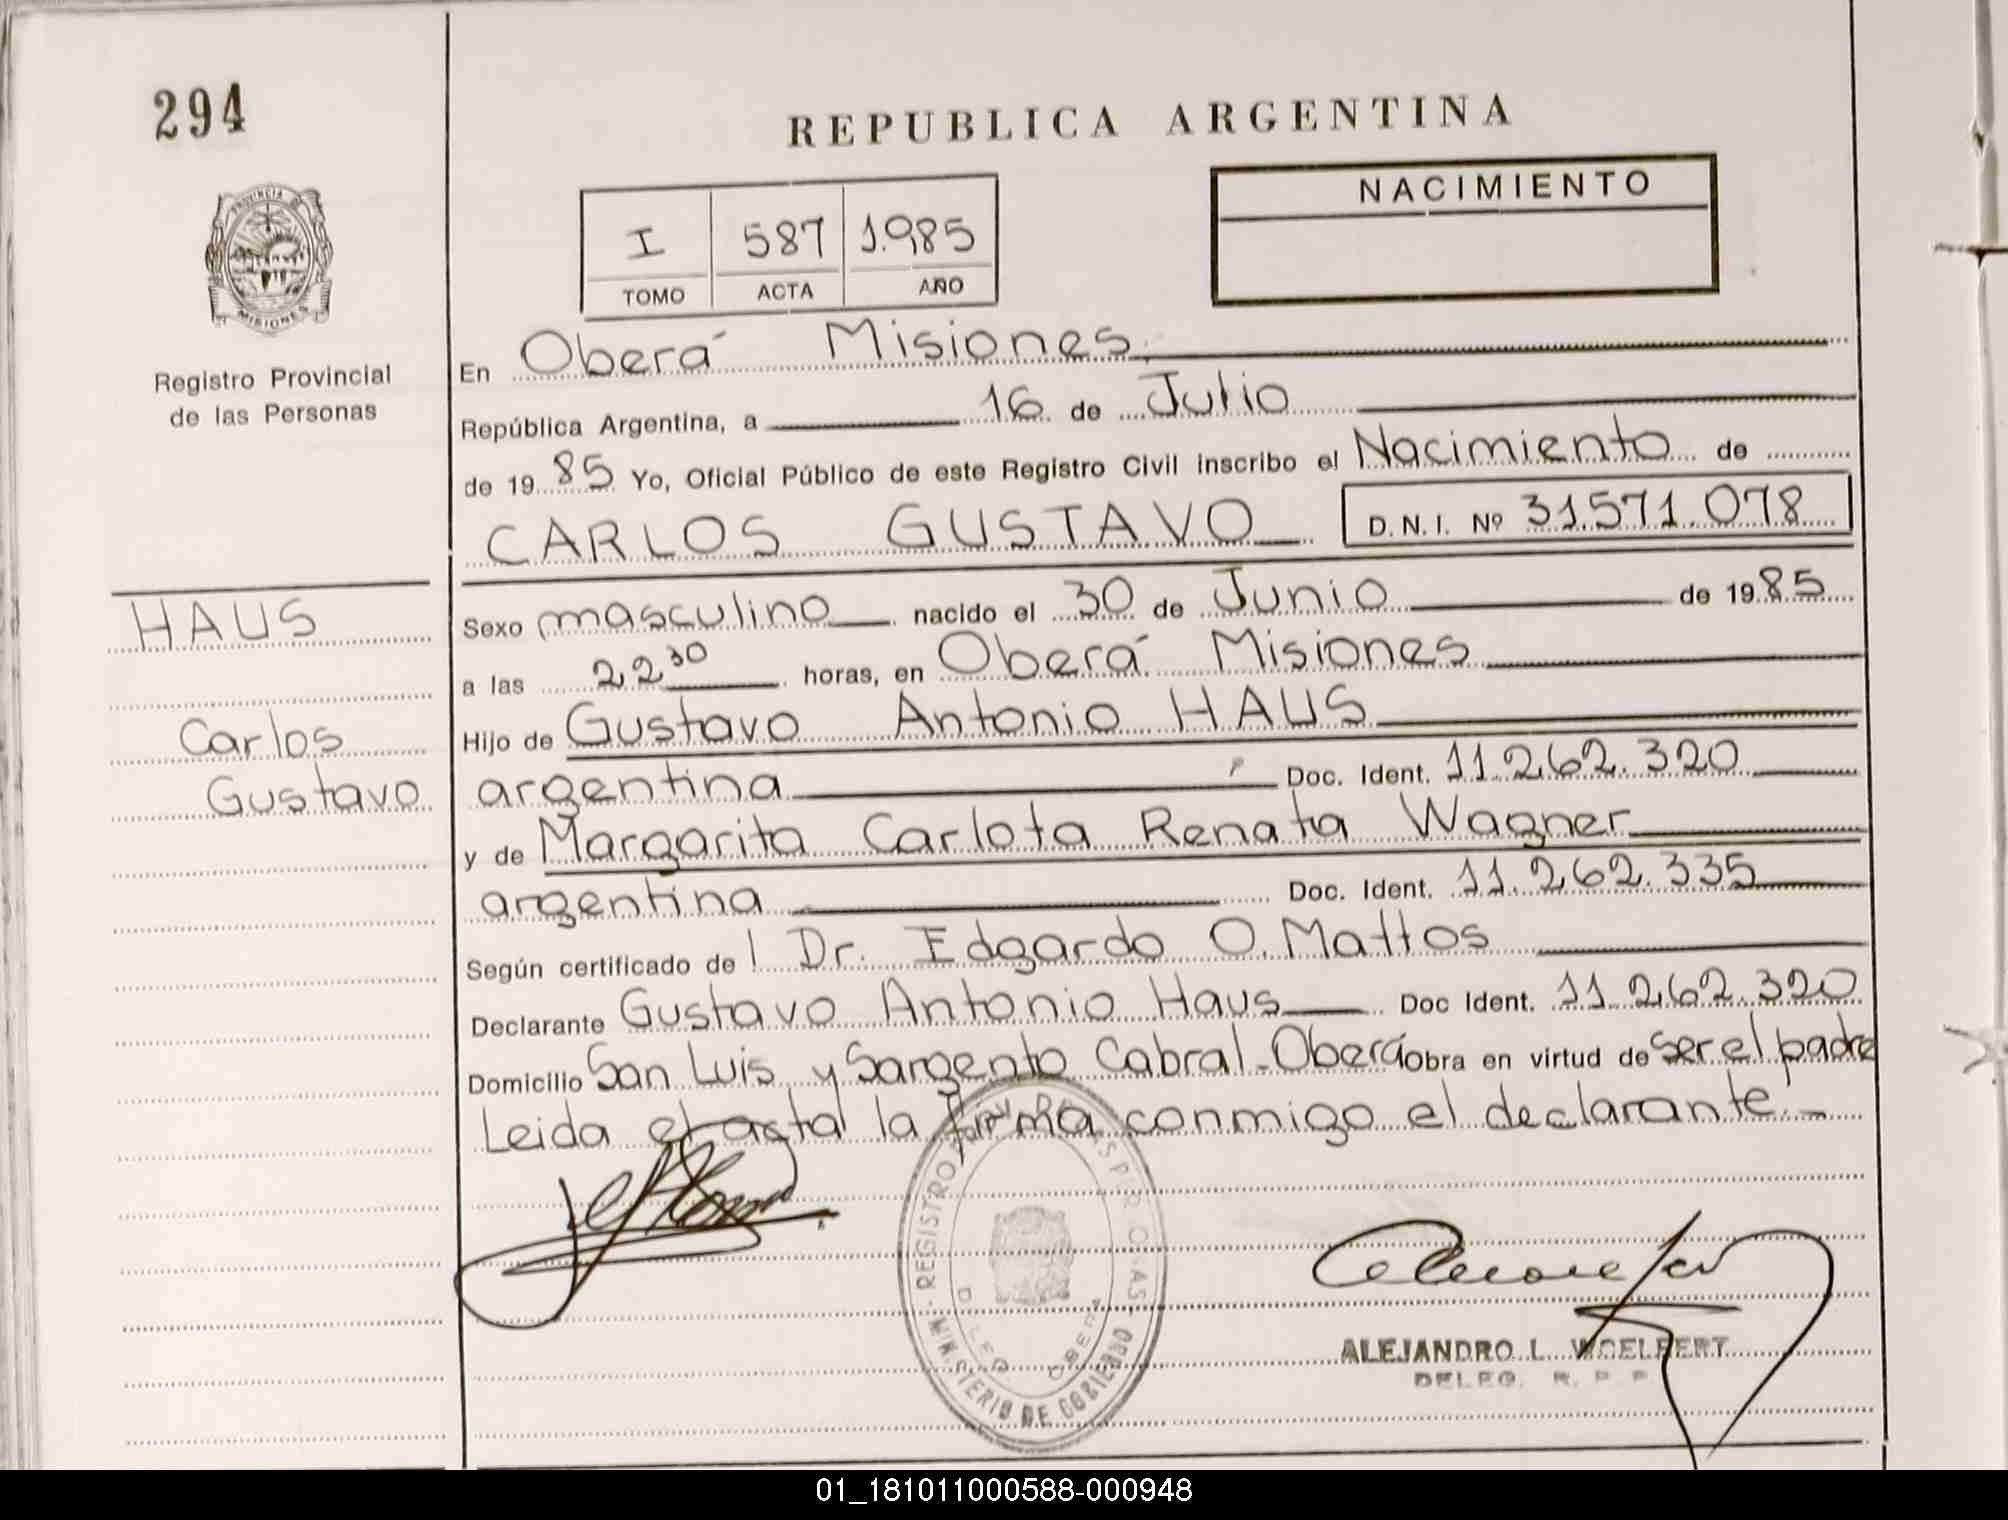 294
REPUBLICA ARGENTINA
NACIMIENTO
I 587 1.985
TOMO ACTA AÑO
PROVINCIA DE
MISIONES
Registro Provincial
de las Personas
En Oberá Misiones.
República Argentina, a 16 de Julio
de 1985 Yo, Oficial Público de este Registro Civil inscribo el Nacimiento de
CARLOS GUSTAVO D.N.I. Nº 31.571.078
HAUS
Carlos
Gustavo
Sexo masculino nacido el 30 de Junio de 1985
a las 22 30 horas, en Oberá Misiones
Hijo de Gustavo Antonio HAUS
argentina Doc. Ident. 11.262.320
y de Margarita Carlota Renata Wagner
argentina Doc. Ident. 11.262.335
Según certificado del Dr. Edgardo O. Mattos
Declarante Gustavo Antonio Haus Doc Ident. 11.262.320
Domicilio San Luis y Sargento Cabral-Oberá obra en virtud de ser el padre
Leida el acta la firma conmigo el declarante.-
REGISTRO PROV. DE LAS PERSONAS
MINISTERIO DE GOBIERNO
DELEG. OBERA
ALEJANDRO L. WOELFERT
DELEG. R. P. P.
01_181011000588-000948